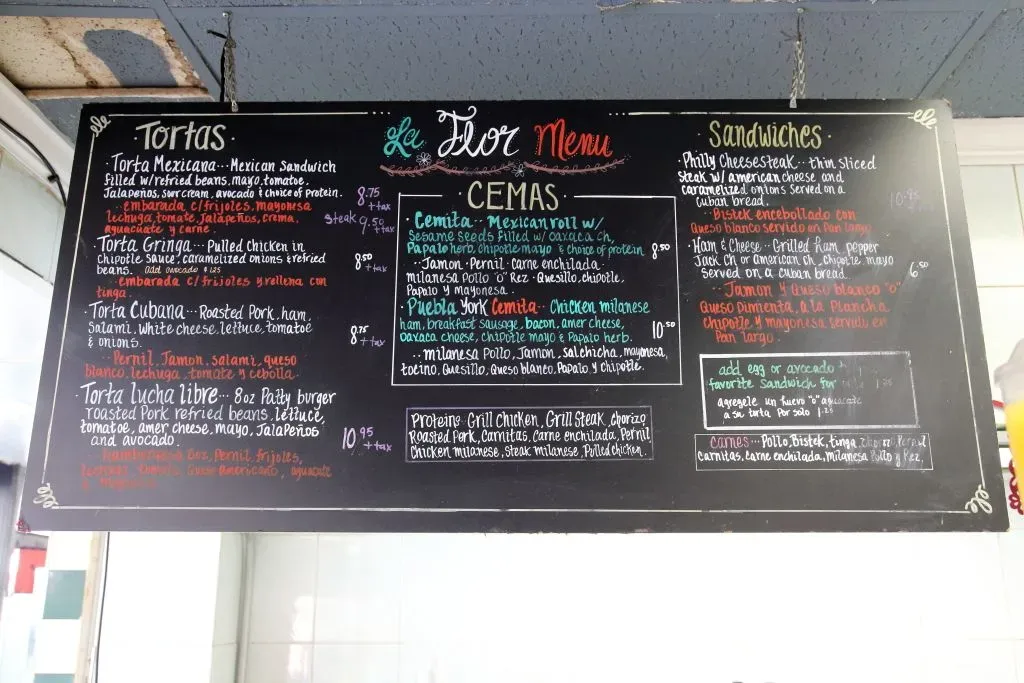 La Flor Menu
Tortas
Torta Mexicana... Mexican Sandwich
filled w/refried beans, mayo, tomatoe,
Jalapeños, sour cream, avocado & choice of protein.
8.75 +tax
embarada c/frijoles, mayonesa
lechuga, tomate, Jalapeños, crema,
aguacuate y carne.
steak 9.50 +tax
Torta Gringa... Pulled chicken in
chipotle sauce, caramelized onions & refried
beans. Add avocado $1.25
8.50 +tax
embarada c/frijoles y rellena con
tinga.
Torta Cubana... Roasted Pork, ham,
Salami, white cheese, lettuce, tomatoe
& onions.
8.75 +tax
Pernil, Jamon, salami, queso
blanco, lechuga, tomate y cebolla.
Torta lucha libre... 8oz Patty burger
roasted Pork refried beans, lettuce,
tomatoe, amer cheese, mayo, Jalapeños
and avocado.
10.95 +tax
8oz, Pernil frijoles,
Queso Americano, aguacate
y
CEMAS
Cemita.. Mexican roll w/
Sesame seeds filled w/ oaxaca ch,
Papalo herb, chipotle mayo & choice of protein
8.50
..Jamon. Pernil. carne enchilada.
milanesa Pollo "o" Rez. Quesillo, chipotle.
Papalo y mayonesa.
Puebla York Cemita.. Chicken milanese
ham, breakfast sausage, bacon, amer cheese,
oaxaca cheese, chipotle mayo & Papalo herb.
10.50
.. milanesa Pollo, Jamon, salchicha, mayonesa,
tocino, Quesillo, Queso blanco, Papalo y chipotle.
Protein: Grill Chicken, Grill Steak, chorizo
Roasted Pork, Carnitas, Carne enchilada, Pernil
Chicken milanese, Steak milanese, Pulled chicken.
Sandwiches
Philly Cheesesteak... thin sliced
steak w/ american cheese and
caramelized onions served on a
cuban bread.
Bistek encebollado con
Queso blanco servido en Pan largo.
Ham & Cheese.. Grilled Ham, pepper
Jack ch or american ch, chipotle mayo
served on a cuban bread...
6.50
Jamon y Queso blanco "o"
Queso Pimienta, a la Plancha
chipotle y mayonesa servido en
Pan largo.
add egg or avocado
favorite sandwich for 1.25
agregele un huevo "o" aguacate
a su torta Por solo 1.25
Carnes... Pollo, Bistek, tinga, chorizo, Pernil
carnitas, carne enchilada, milanesa Pollo y Rez,